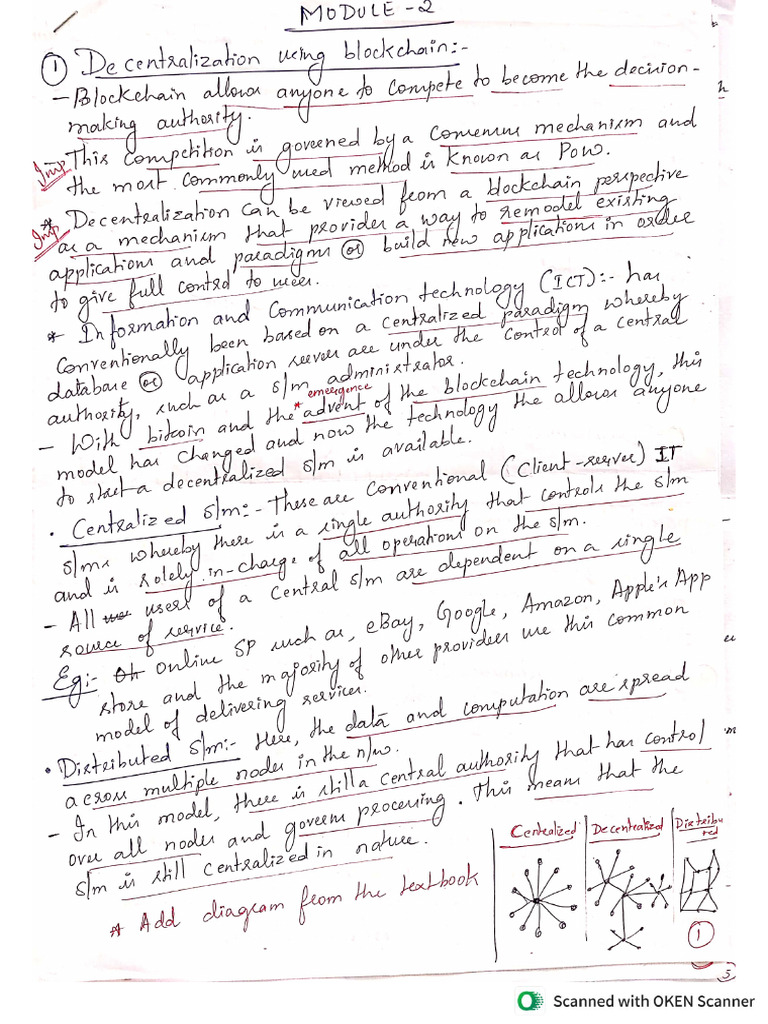 MODULE - 2
① Decentralization using blockchain:-
- Blockchain allows anyone to compete to become the decision-
making authority.
Imp - This competition is governed by a Consensus mechanism and
the most commonly used method is known as PoW.
Imp * Decentralization can be viewed from a blockchain perspective
as a mechanism that provides a way to remodel existing
applications and paradigms or build new applications in order
to give full control to users.
* Information and Communication technology (ICT):- has
Conventionally been based on a centralized paradigm whereby
database or application servers are under the control of a central
authority, such as a s/m administrator.
* emergence
- With bitcoin and the advent of the blockchain technology, this
model has changed and now the technology the allows anyone
to start a decentralized s/m is available.
• Centralized s/m:- These are conventional (Client-server) IT
s/ms whereby there is a single authority that controls the s/m
and is solely in-charge of all operations on the s/m.
- All users of a central s/m are dependent on a single
source of service.
Eg:- Online SP such as, eBay, Google, Amazon, Apple's App
store and the majority of other providers use this common
model of delivering services.
• Distributed s/m:- Here, the data and computation are spread
across multiple nodes in the n/w.
- In this model, there is still a central authority that has control
over all nodes and govern processing. This means that the
s/m is still centralized in nature.
* Add diagram from the textbook
Centralized Decentralized Distribu
ted
①
5
Scanned with OKEN Scanner